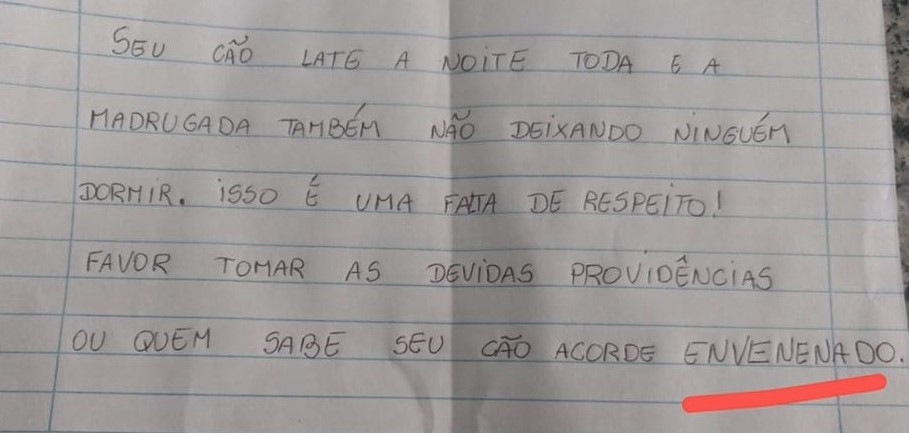 SEU CÃO LATE A NOITE TODA E A
MADRUGADA TAMBÉM NÃO DEIXANDO NINGUÉM
DORMIR. ISSO É UMA FALTA DE RESPEITO!
FAVOR TOMAR AS DEVIDAS PROVIDÊNCIAS
OU QUEM SABE SEU CÃO ACORDE ENVENENADO.